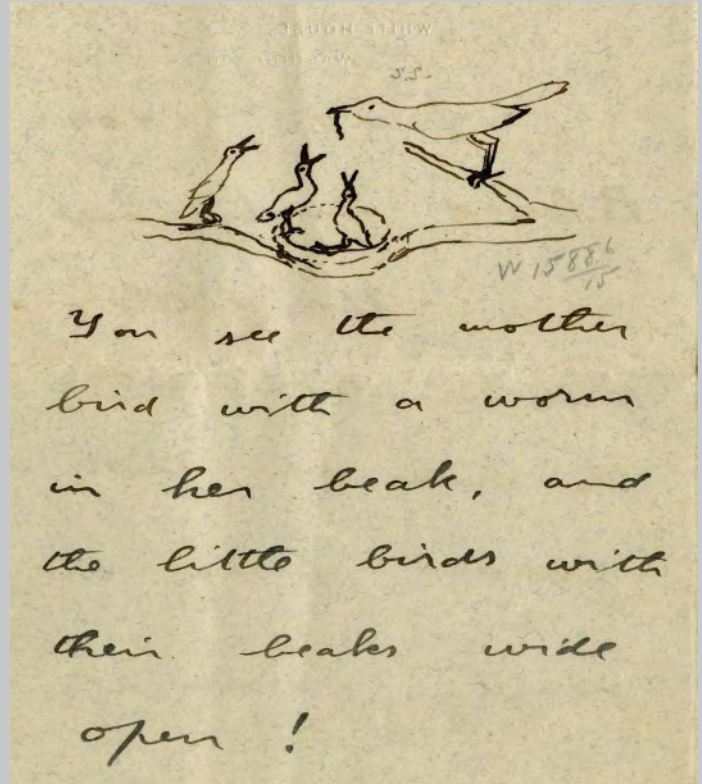 You see the mother
bird with a worm
in her beak, and
the little birds with
their beaks wide
open!